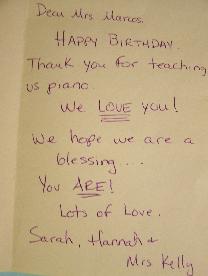 Dear Mrs Marcos.
HAPPY BIRTHDAY.
Thank you for teaching
us piano.
We LOVE you!
We hope we are a
blessing...
You ARE!
Lots of Love.
Sarah, Hannah +
Mrs Kelly